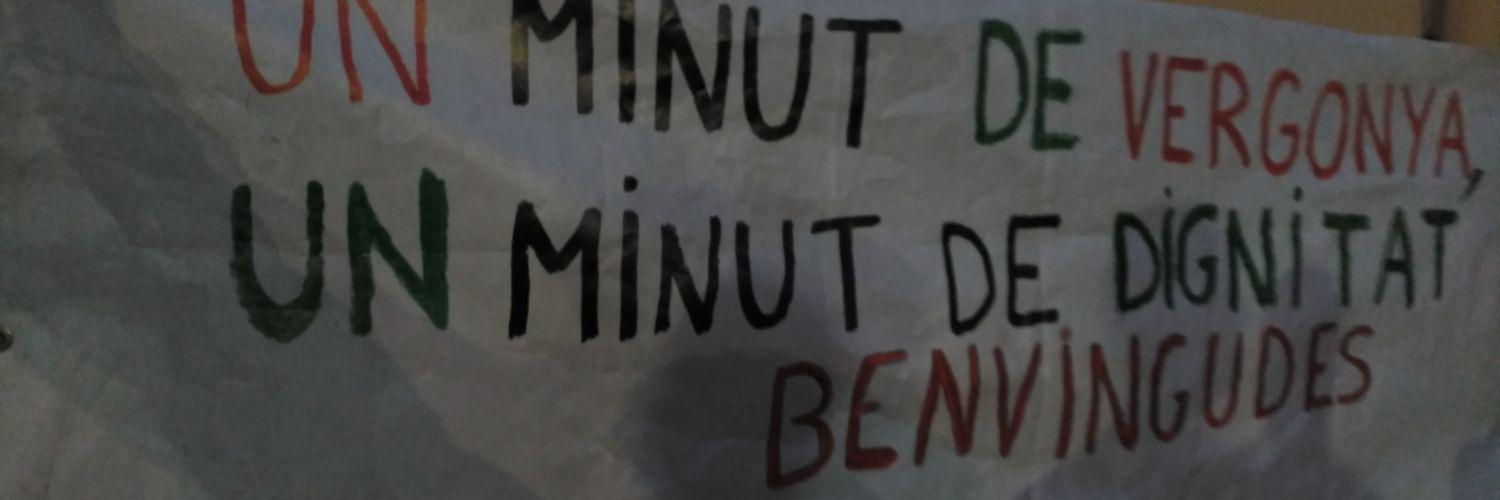 UN MINUT DE VERGONYA,
UN MINUT DE DIGNITAT
BENVINGUDES